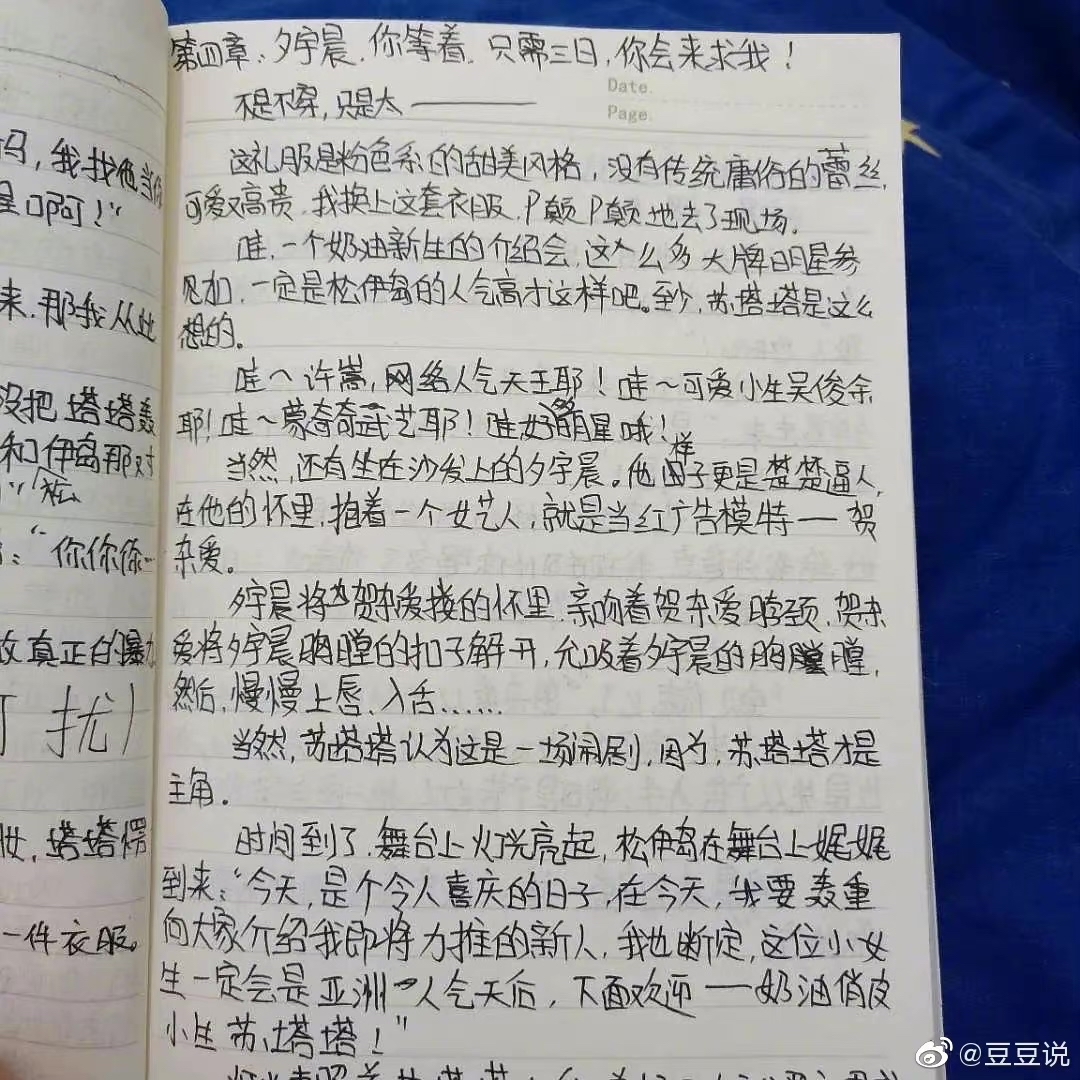 吗，我找他当
星啊！"
来，那我从此
没把塔塔轰
和伊岛那对
松
："你你你…
真正的暴力
扰！
妆，塔塔愣
一件衣服。
第四章：夕宇晨，你等着，只需三日，你会来求我！
Date.
Page.
不是不穿，只是太————
这礼服是粉色系的甜美风格，没有传统庸俗的蕾丝，
可爱又高贵，我换上这套衣服，P颠P颠地去了现场。
哇，一个奶油新生的介绍会，这个么多大牌明星参
见加，一定是松伊岛的人气高才这样吧。至少，苏塔塔是这么
想的。
哇～许嵩，网络人气天王耶！哇～可爱小生吴俊余
耶！哇～蒙奇奇武艺耶！哇好多明星哦！
当然，还有坐在沙发上的夕宇晨。他样子更是楚楚逼人，
在他的怀里，抱着一个女艺人，就是当红广告模特——贺
杂爱。
夕宇晨将贺杂爱搂的怀里，亲吻着贺杂爱脖颈，贺杂
爱将夕宇晨胸膛的扣子解开，允吸着夕宇晨的胸膛，
然后，慢慢上唇、入舌……
当然，苏塔塔认为这是一场闹剧，因为，苏塔塔才是
主角。
时间到了，舞台上灯光亮起，松伊岛在舞台上娓娓
到来："今天，是个令人喜庆的日子，在今天，我要轰重
向大家介绍我即将力推的新人，我也断定，这位小女
生一定会是亚洲人气天后，下面欢迎——奶油俏皮
小生苏塔塔！"
@豆豆说